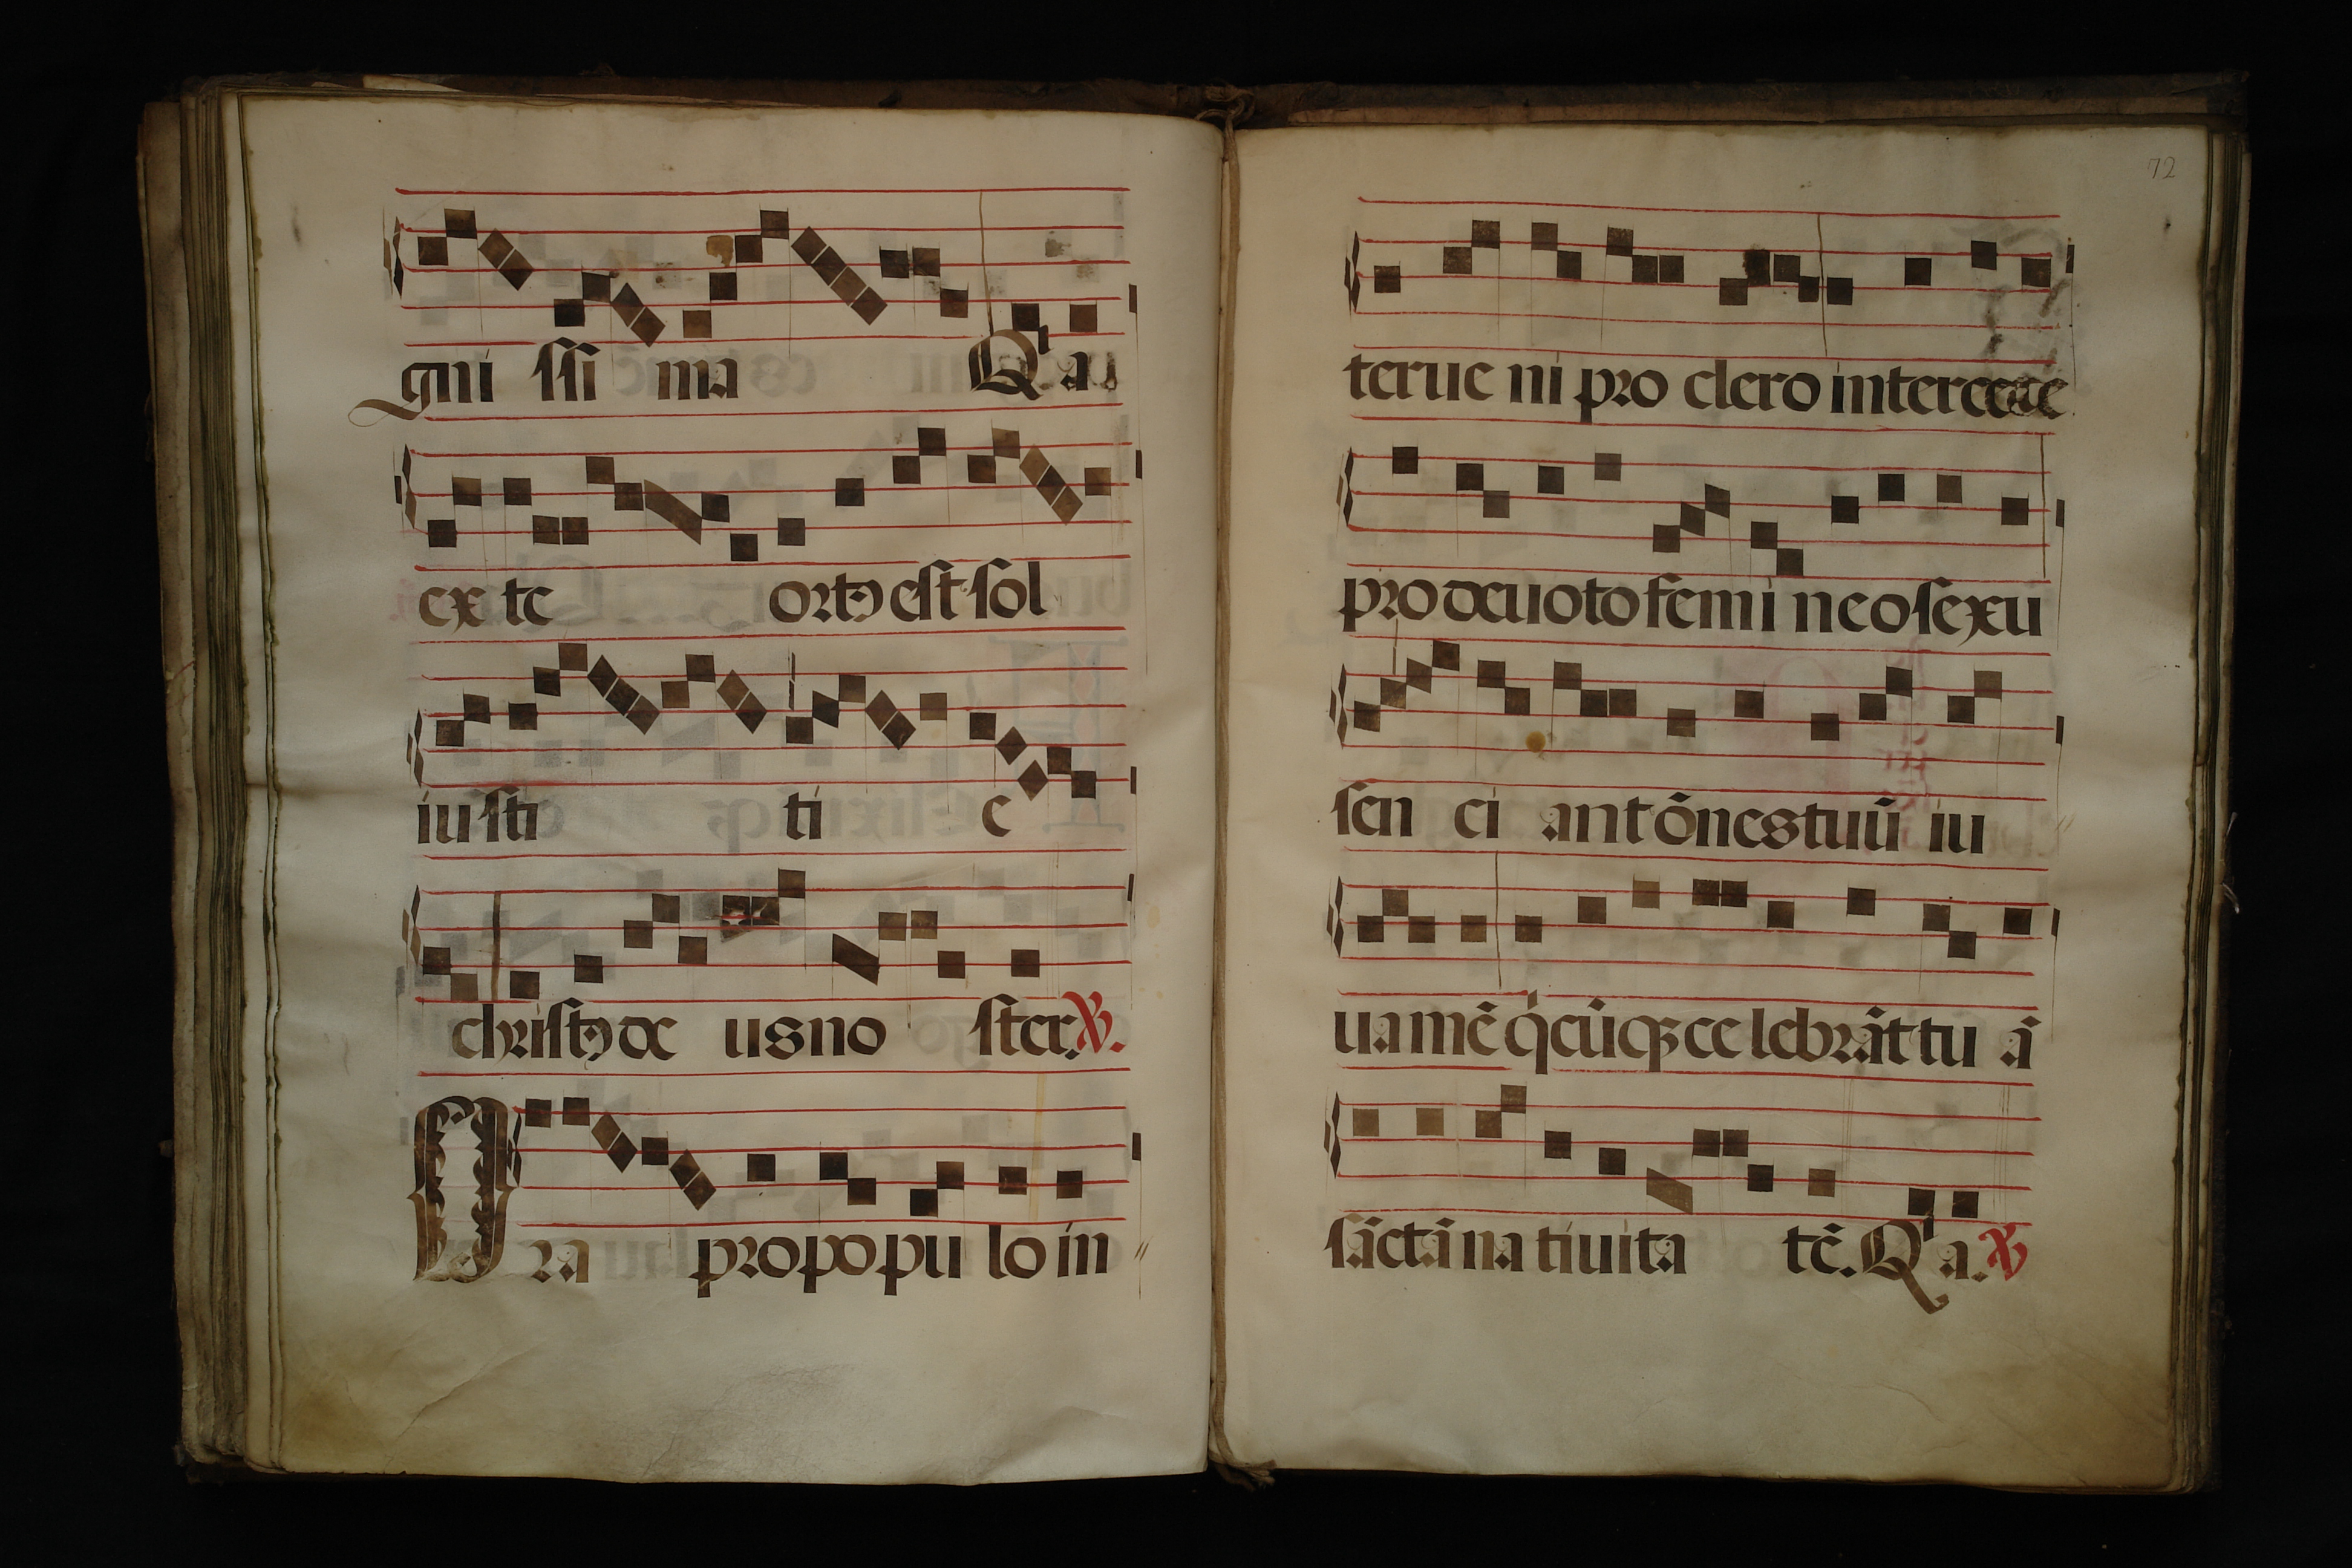 gni ssi ma Qa
ex te ortꝰ est sol
iu sti ti e
christꝰ de us no ster. ℣.
Ora pro po pu lo in
72
terue ni pro clero intercede
pro deuoto femi neo sexu
sen ci ant õnes tuũ iu
uamẽ q̇cũqꝫ ce lebrãt tu ã
sãctã na tiuita tẽ. Qa. ℣